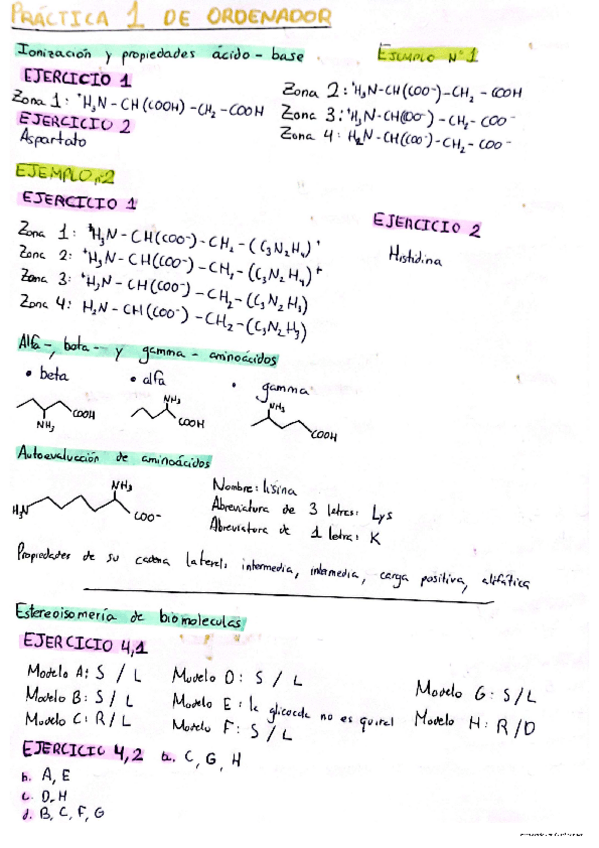 PRÁCTICA 1 DE ORDENADOR
Ionización y propiedades ácido-base
EJEMPLO Nº1
EJERCICIO 1
Zona 1: ⁺H₃N-CH(COOH)-CH₂-COOH
Zona 2: ⁺H₃N-CH(COO⁻)-CH₂-COOH
Zona 3: ⁺H₃N-CH(COO⁻)-CH₂-COO⁻
Zona 4: H₂N-CH(COO⁻)-CH₂-COO⁻
EJERCICIO 2
Aspartato
EJEMPLO nº2
EJERCICIO 1
Zona 1: ⁺H₃N-CH(COO⁻)-CH₂-(C₃N₂H₄)⁺
Zona 2: ⁺H₃N-CH(COO⁻)-CH₂-(C₃N₂H₄)⁺
Zona 3: ⁺H₃N-CH(COO⁻)-CH₂-(C₃N₂H₃)
Zona 4: H₂N-CH(COO⁻)-CH₂-(C₃N₂H₃)
EJERCICIO 2
Histidina
Alfa-, beta- y gamma-aminoácidos
• beta
• alfa
• gamma
COOH
NH₃
NH₃
COOH
NH₃
COOH
Autoevaluación de aminoácidos
NH₃
H₃N
COO⁻
Nombre: lisina
Abreviatura de 3 letras: Lys
Abreviatura de 1 letra: K
Propiedades de su cadena lateral: intermedia, intermedia, carga positiva, alifática
Estereoisomería de biomoleculas
EJERCICIO 4,1
Modelo A: S / L
Modelo B: S / L
Modelo C: R / L
Modelo D: S / L
Modelo E: la glicocola no es quiral
Modelo F: S / L
Modelo G: S/L
Modelo H: R/D
EJERCICIO 4,2 a. C, G, H
b. A, E
c. D, H
d. B, C, F, G